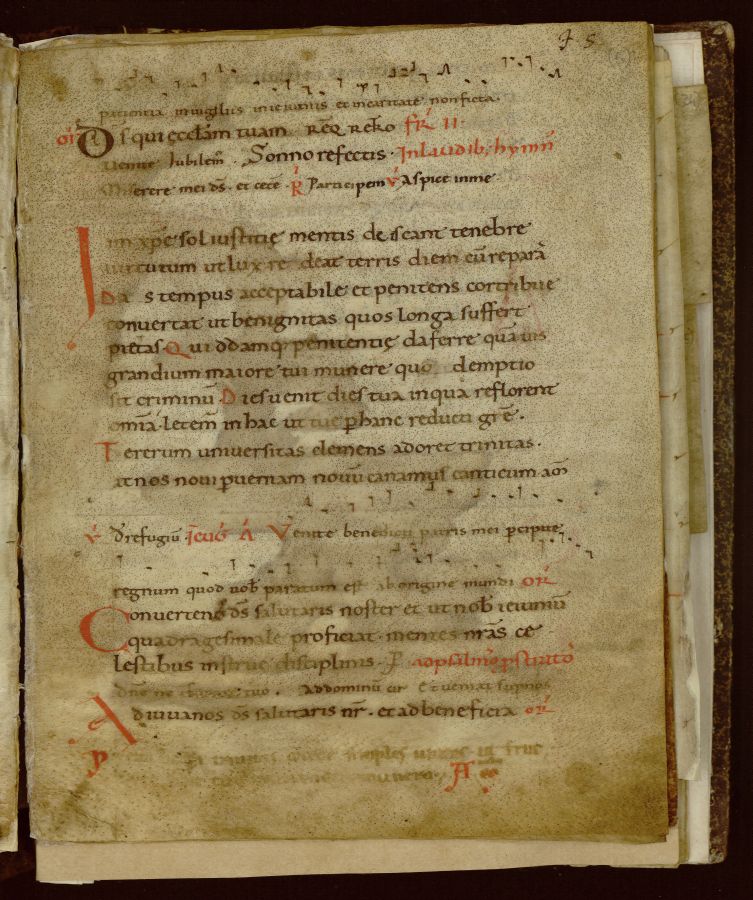 patientia in uigiliis in ieiuniis et in caritate non ficta.
D̄s qui ecclam tuam Req̄ reƚo fr̄ II.
Uenite Iubilem̄. Sonno refectis. In laudib; hymn̄
Miserere mei d̄s. et cete. R̄ Participem V̄ Aspice in me
Iam xp̄e sol iustitię mentis deiscant tenebre
uirtutum ut lux re deat terris diem cū reparā
Da s tempus acceptabile et penitens cortribue
conuertat ut benignitas quos longa suffert
pietas Qui ddamq; penitentię da ferre quāuis
grandium maiore tui munere quo demptio
sit criminū Dies uenit dies tua in qua reflorent
omīa letem̄ in hac ut tue p hanc reducti grē.
Te rerum uniuersitas clemens adoret trinitas.
ut nos noui p ueniam nouū canamus canticum am̄
V̄ D̄. refugiū A Uenite benedicti patris mei percipite
regnum quod uob̄ paratum est ab origine mundi or̄
Conuerte nos d̄s salutaris noster et ut nob̄ ieiuniū
quadragesimale proficiat. mentes nr̄as ce
lestibus instrue disciplinis. P
dn̄e ne tuo. Ad dominū
Adiuua nos d̄s salutaris nr̄. et ad beneficia or̄
A